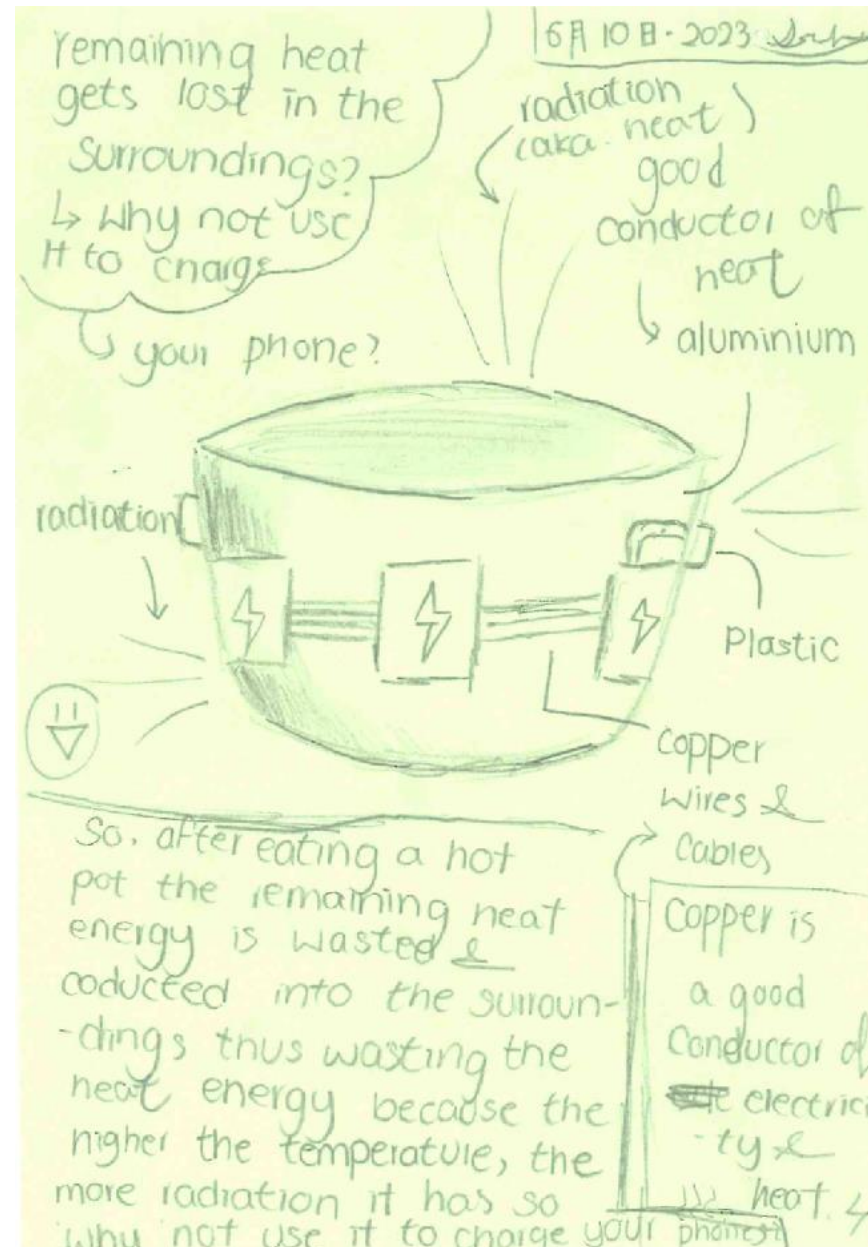 remaining heat
gets lost in the
surroundings?
↳ why not use
it to charge
your phone?
6月10日·2023
radiation
(aka. heat)
good
conductor of
heat
aluminium
radiation
Plastic
copper
wires &
cables
So, after eating a hot
pot the remaining heat
energy is wasted &
coducted into the surroun-
-dings thus wasting the
heat energy because the
higher the temperature, the
more radiation it has so
why not use it to charge your phones?
Copper is
a good
conductor of
electrici
-ty &
heat.